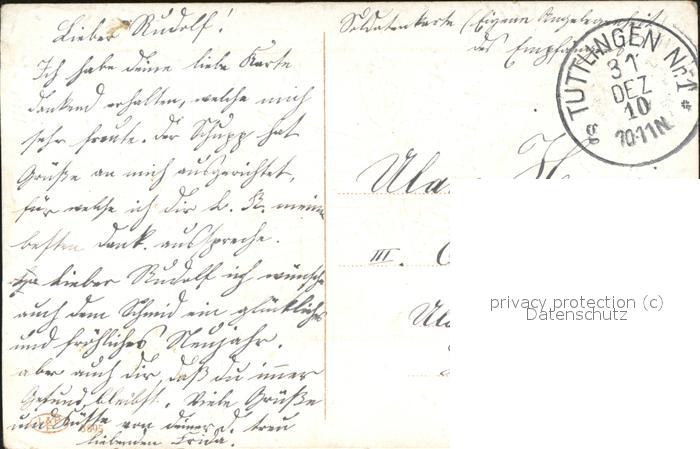 Lieber Rudolf!
Ich habe deine liebe Karte
dankend erhalten, welche mich
sehr freute. der Schupp hat
Grüße an mich ausgerichtet,
für welche ich dir l. R. meinen
besten Dank ausspreche.
Lieber Rudolf ich wünsche
auch dem Schmid ein glückliches
und fröhliches Neujahr.
aber auch dir, daß du immer
Gesund bleibst. Viele Grüße
und Küsse von deiner d. treu
liebenden Frida.
Soldatenkarte (Eigene Angelegenheit
des Empfängers
TUTTLINGEN Nr.1
31
DEZ
10
10-11N.
Ula
III.
Ul
privacy protection (c)
Datenschutz